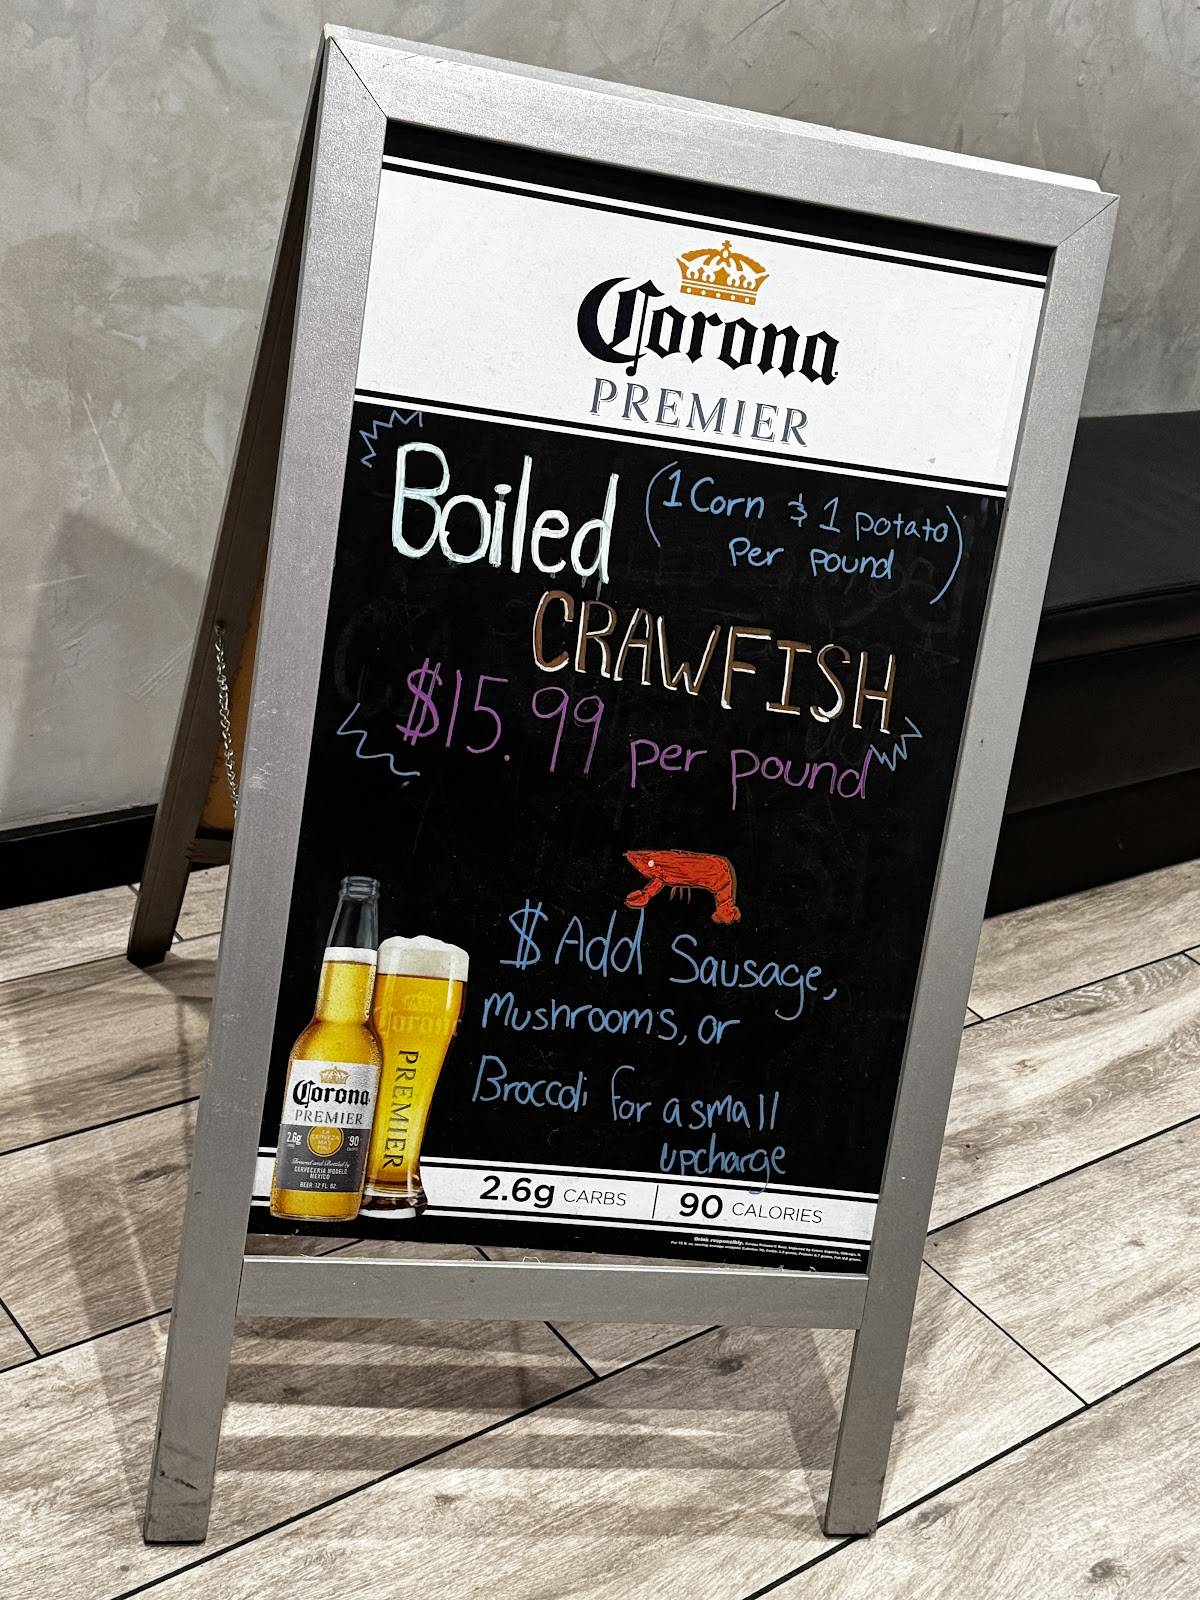 Corona
PREMIER
Boiled
(1 Corn & 1 potato)
per pound
CRAWFISH
$15.99 per pound
$ Add Sausage,
Mushrooms, or
Broccoli for a small
upcharge
Corona
PREMIER
Corona
PREMIER
2.6g
90
LA CERVEZA MAS FINA
Brewed and Bottled by
CERVECERIA MODELO
MEXICO
BEER 12 FL. OZ.
2.6g CARBS | 90 CALORIES
Drink responsibly.